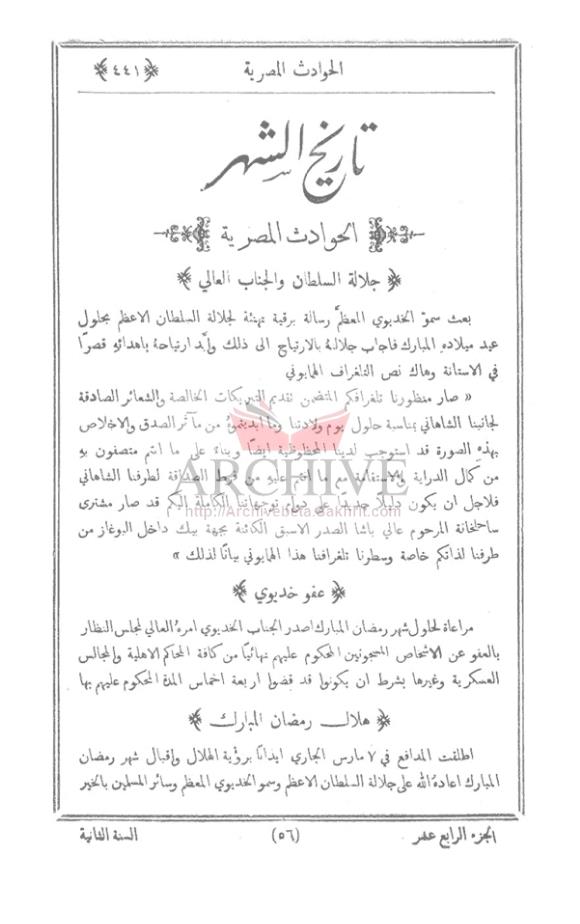 الحوادث المصرية ﴿ ٤٤١ ﴾
تاريخ الشهر
الحوادث المصرية
﴿ جلالة السلطان والجناب العالي ﴾
بعث سمو الخديوي المعظم رسالة برقية تهنئة لجلالة السلطان الاعظم بحلول
عيد ميلاده المبارك فاجاب جلالتهُ بالارتياح الى ذلك وأيَّد ارتياحهُ باهدائهِ قصرًا
في الاستانة وهاك نص التلغراف الهمايوني
« صار منظورنا تلغرافكم المتضمن تقديم التبريكات الخالصة والشعائر الصادقة
لجانبنا الشاهاني بمناسبة حلول يوم ولادتنا وما ابديتموهُ من مآثر الصدق والاخلاص
بهذه الصورة قد استوجب لدينا المحظوظية ايضًا وبناء على ما انتم متصفون به
من كمال الدراية والاستقامة مع ما انتم عليه من فرط الصداقة لطرفنا الشاهاني
فلاجل ان يكون دليلًا جديدًا على دوام توجهاتنا الكاملة اليكم قد صار مشترى
ساحلخانة المرحوم عالي باشا الصدر الاسبق الكائنة بجهة ببك داخل البوغاز من
طرفنا لذاتكم خاصة وسطرنا تلغرافنا هذا الهمايوني بيانًا لذلك »
ARCHIVE
http://Archivebeta.Sakhrit.com
﴿ عفو خديوي ﴾
مراعاة لحلول شهر رمضان المبارك اصدر الجناب الخديوي امرهُ العالي لمجلس النظار
بالعفو عن الاشخاص المسجونين المحكوم عليهم نهائيًا من كافة المحاكم الاهلية والمجالس
العسكرية وغيرها بشرط ان يكونوا قد قضوا اربعة اخماس المدة المحكوم عليهم بها
﴿ هلال رمضان المبارك ﴾
اطلقت المدافع في ٧ مارس الجاري ايذانًا برؤية الهلال وإقبال شهر رمضان
المبارك اعاده الله على جلالة السلطان الاعظم وسمو الخديوي المعظم وسائر المسلمين بالخير
الجزء الرابع عشر (٥٦) السنة الثانية